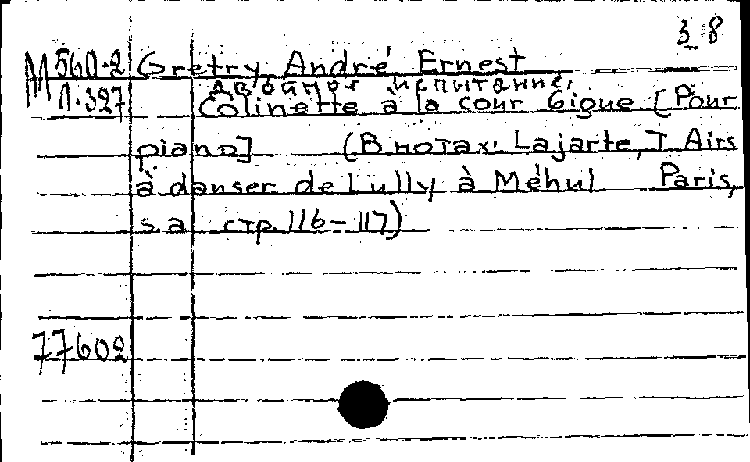 38
М560-2 Gretry André Ernest
Двойное испытание.
Л.327 Colinette à la cour Gigue [Pour
piano] (В нотах: Lajarte, T. Airs
à danser de Lully à Méhul Paris,
s.a. стр. 116-117)
77602